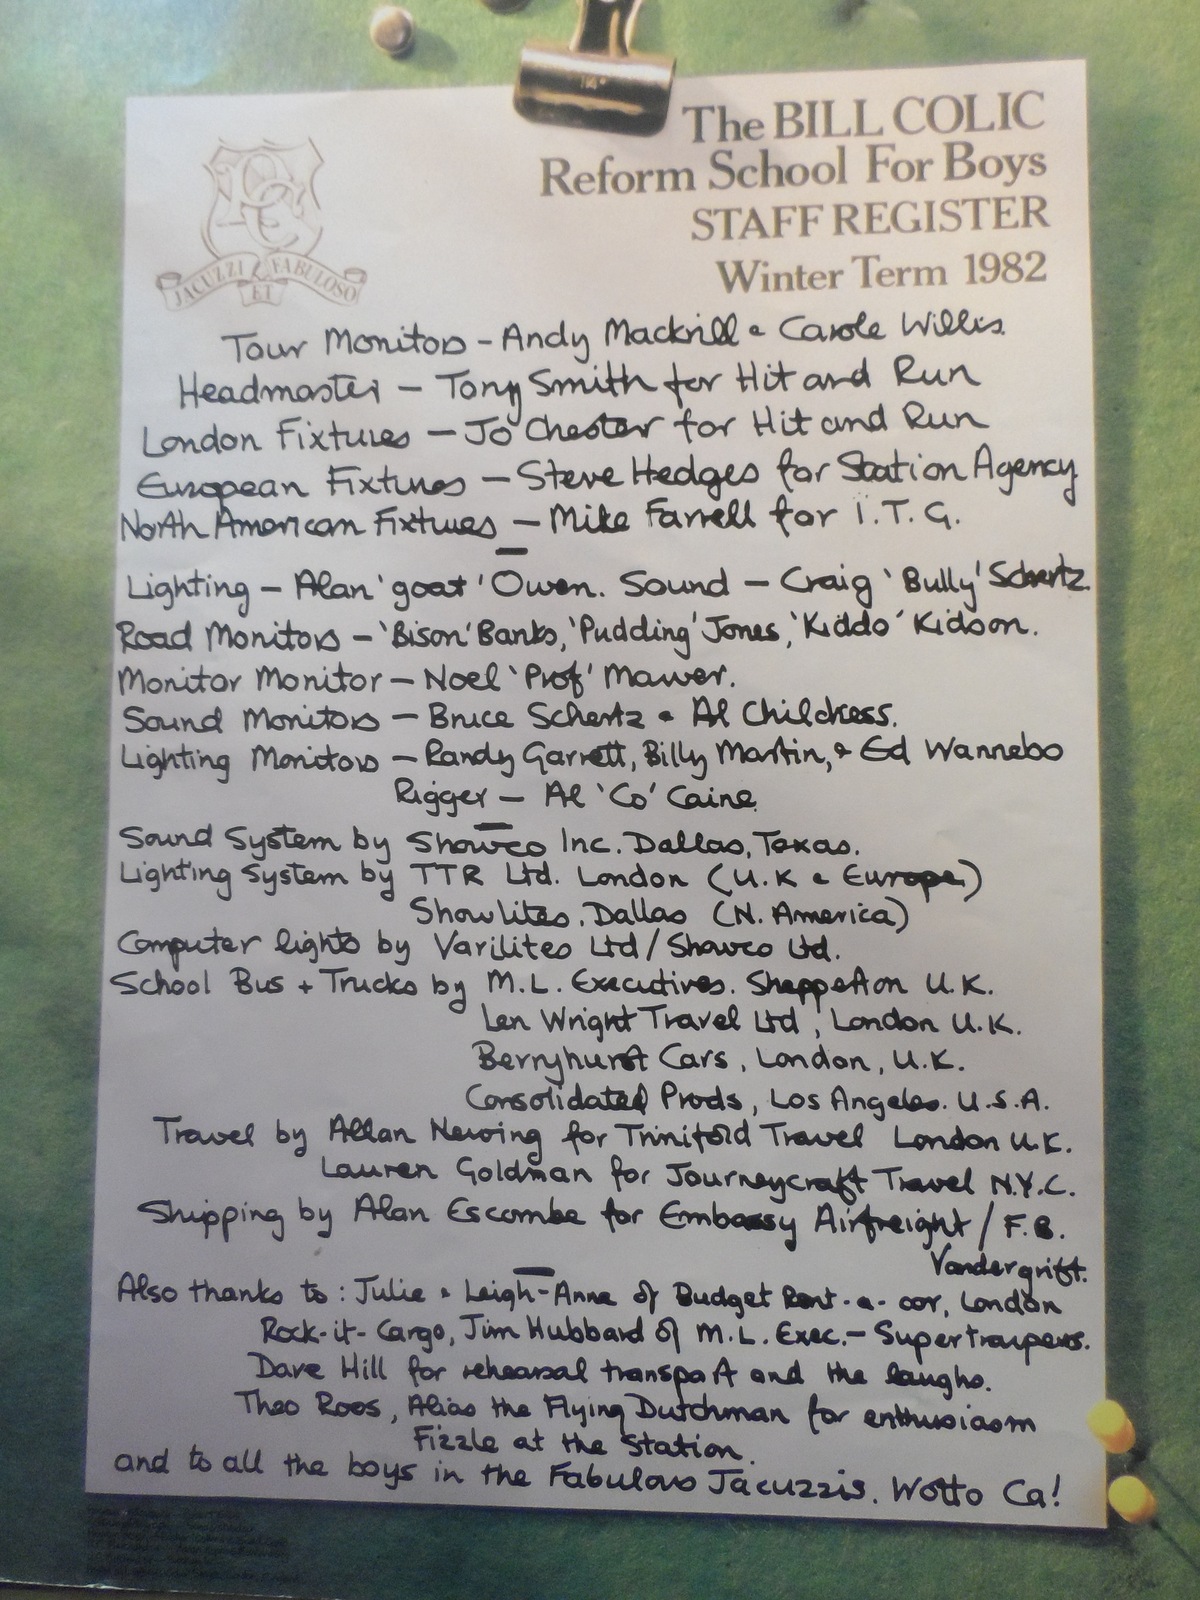 The BILL COLIC
Reform School For Boys
STAFF REGISTER
Winter Term 1982
JACUZZI ET FABULOSO
Tour Monitors - Andy Mackrill & Carole Willis.
Headmaster - Tony Smith for Hit and Run
London Fixtures - Jo Chester for Hit and Run
European Fixtures - Steve Hedges for Station Agency
North American Fixtures - Mike Farrell for I.T.G.
Lighting - Alan 'goat' Owen. Sound - Craig 'Bully' Schertz.
Road Monitors - 'Bison' Banks, 'Pudding' Jones, 'Kiddo' Kidson.
Monitor Monitor - Noel 'Prof' Mawer.
Sound Monitors - Bruce Schertz & Al Childress.
Lighting Monitors - Randy Garrett, Billy Martin, & Ed Wannebo
Rigger - Al 'Co' Caine.
Sound System by Showco Inc. Dallas, Texas.
Lighting System by TTR Ltd. London (U.K & Europe.)
Showlites. Dallas (N. America)
Computer lights by Varilites Ltd/Showco Ltd.
School Bus + Trucks by M.L. Executives. Shepperton U.K.
Len Wright Travel Ltd, London U.K.
Berryhurst Cars, London, U.K.
Consolidated Prods, Los Angeles. U.S.A.
Travel by Allan Newing for Trinifold Travel London U.K.
Lauren Goldman for Journeycraft Travel N.Y.C.
Shipping by Alan Escombe for Embassy Airfreight / F.B.
Vandergrift.
Also thanks to: Julie & Leigh-Anne of Budget Rent-a-car, London
Rock-it-Cargo, Jim Hubbard of M.L. Exec. - Supertroupers.
Dave Hill for rehearsal transport and the laughs.
Theo Roos, Alias the Flying Dutchman for enthusiasm
Fizzle at the Station.
and to all the boys in the Fabulous Jacuzzis. Wotto Ca!